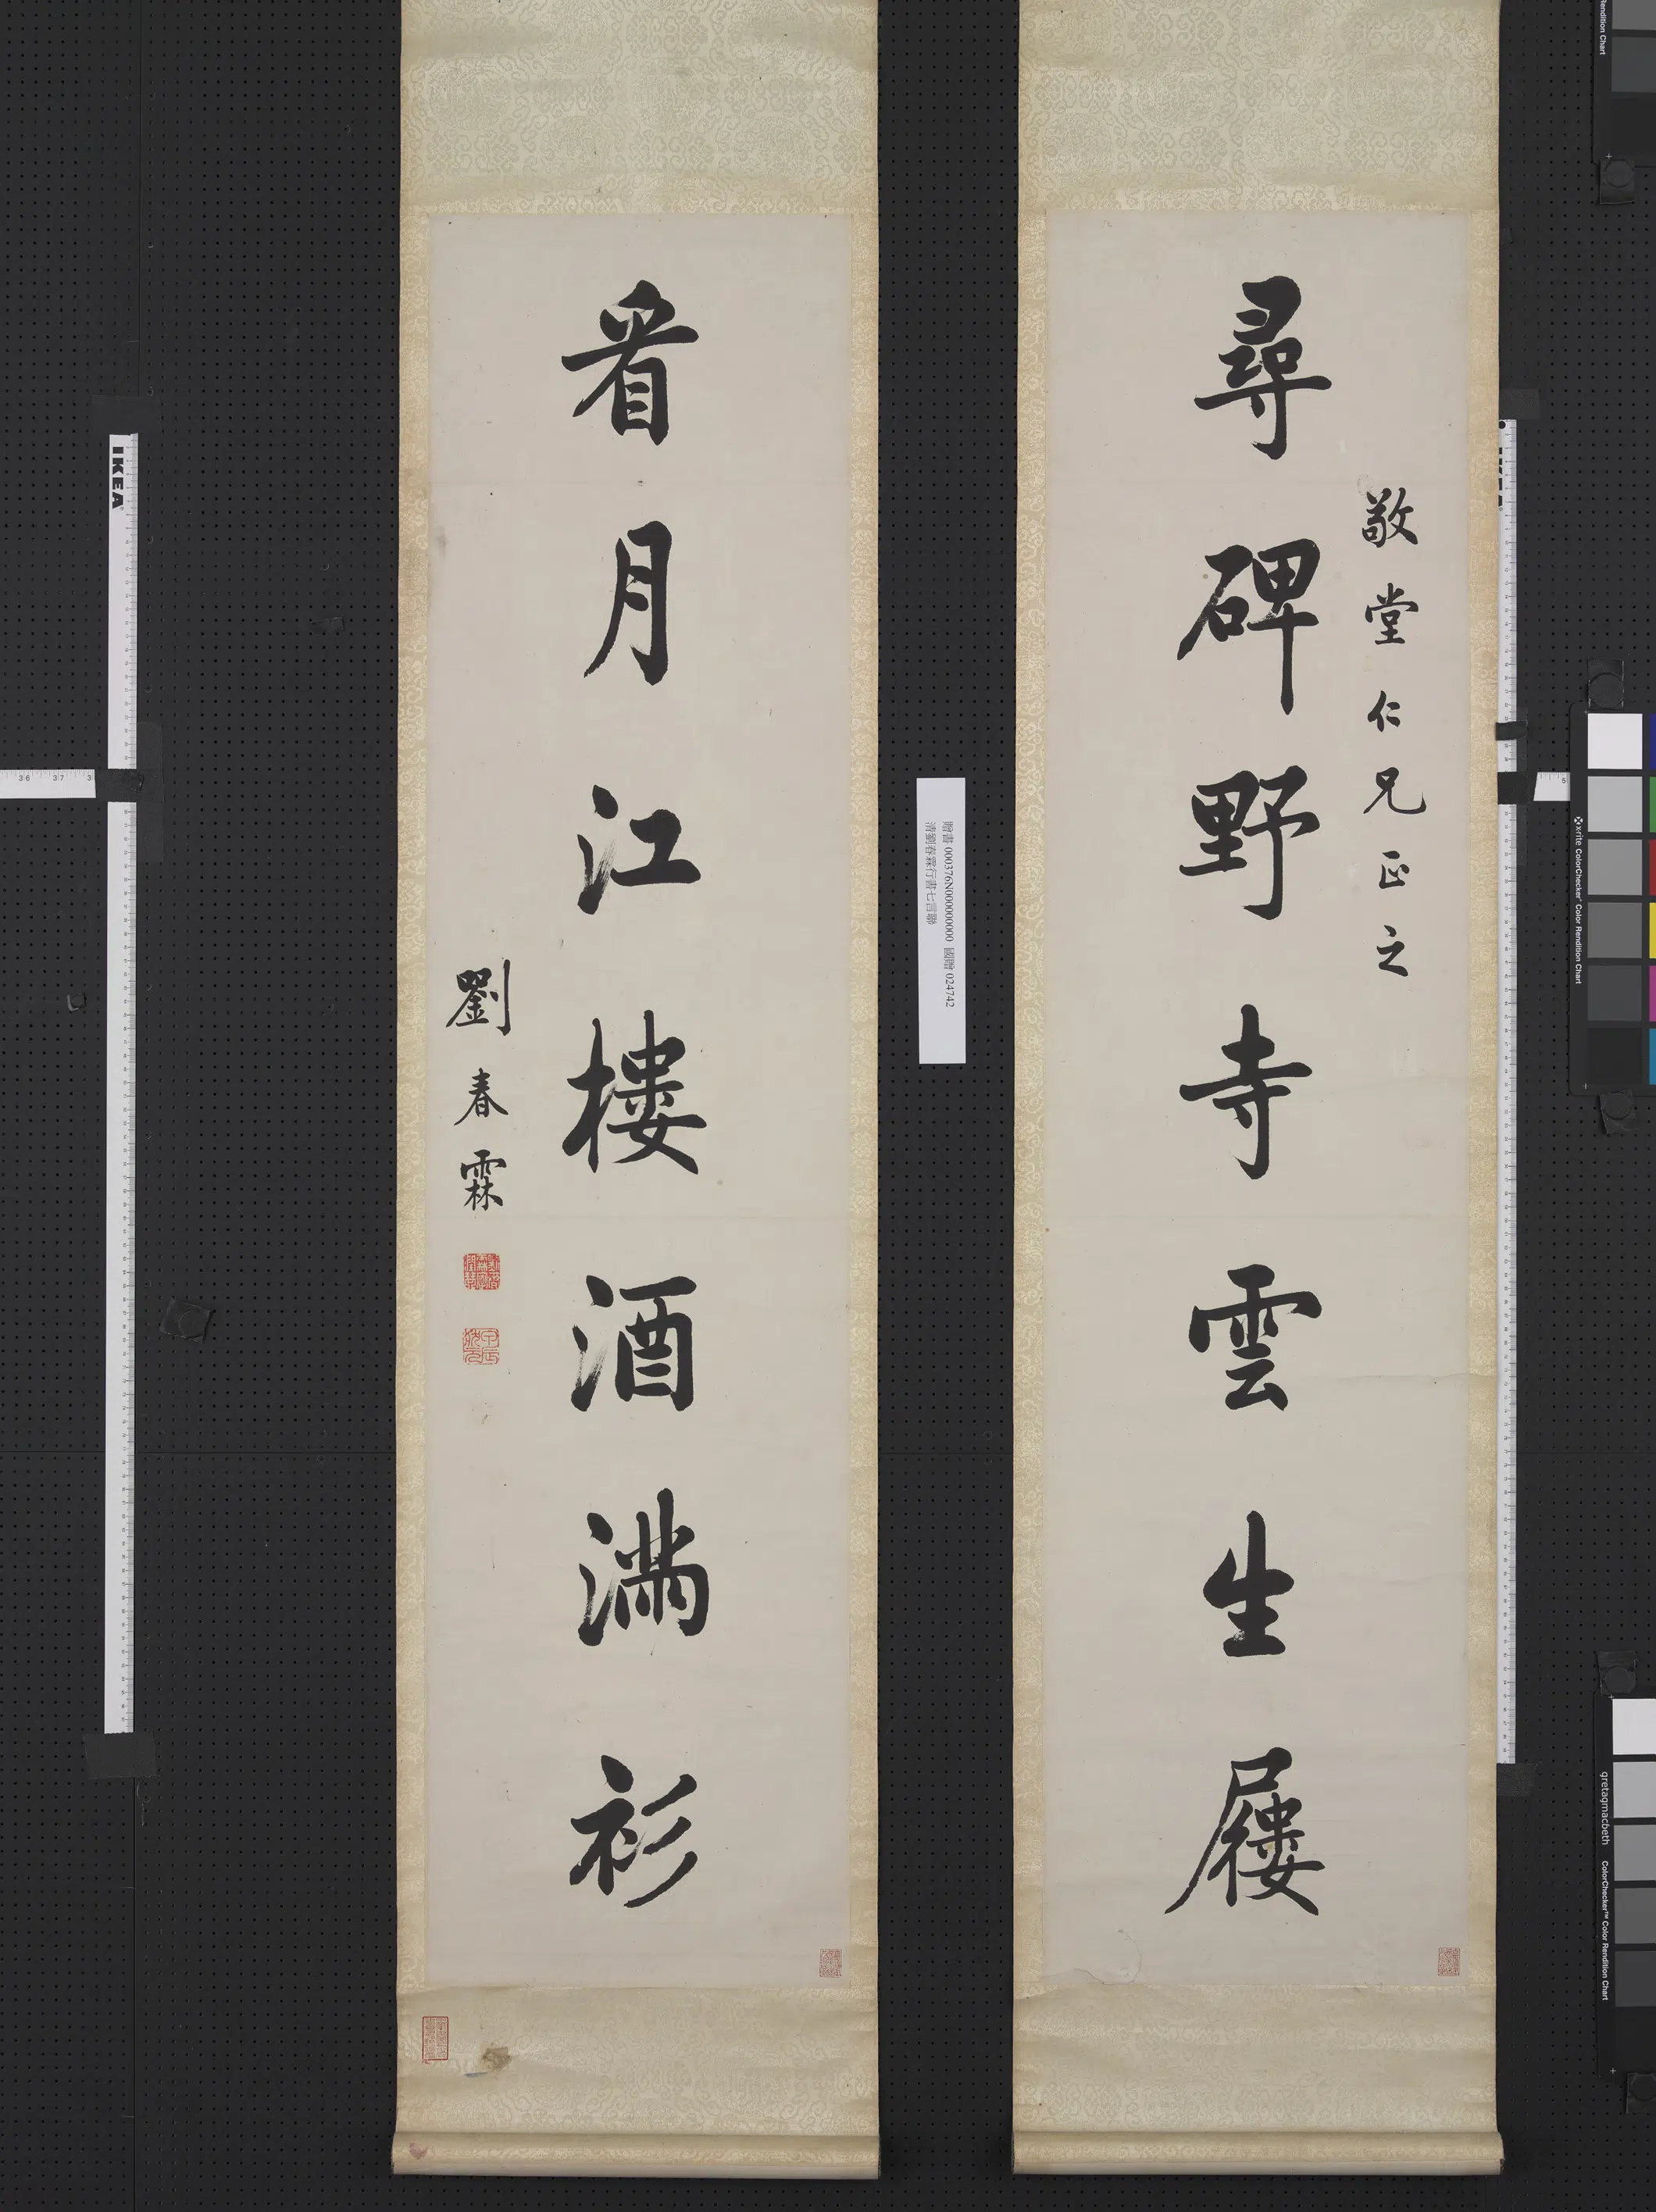 尋碑野寺雲生屨
敬堂仁兄正之
看月江樓酒滿衫
劉春霖
贈書 000376N000000000 國贈 024742
清劉春霖行書七言聯
IKEA
36 37
x-rite ColorChecker® Color Rendition Chart
gretagmacbeth ColorChecker™ Color Rendition Chart
Rendition Chart